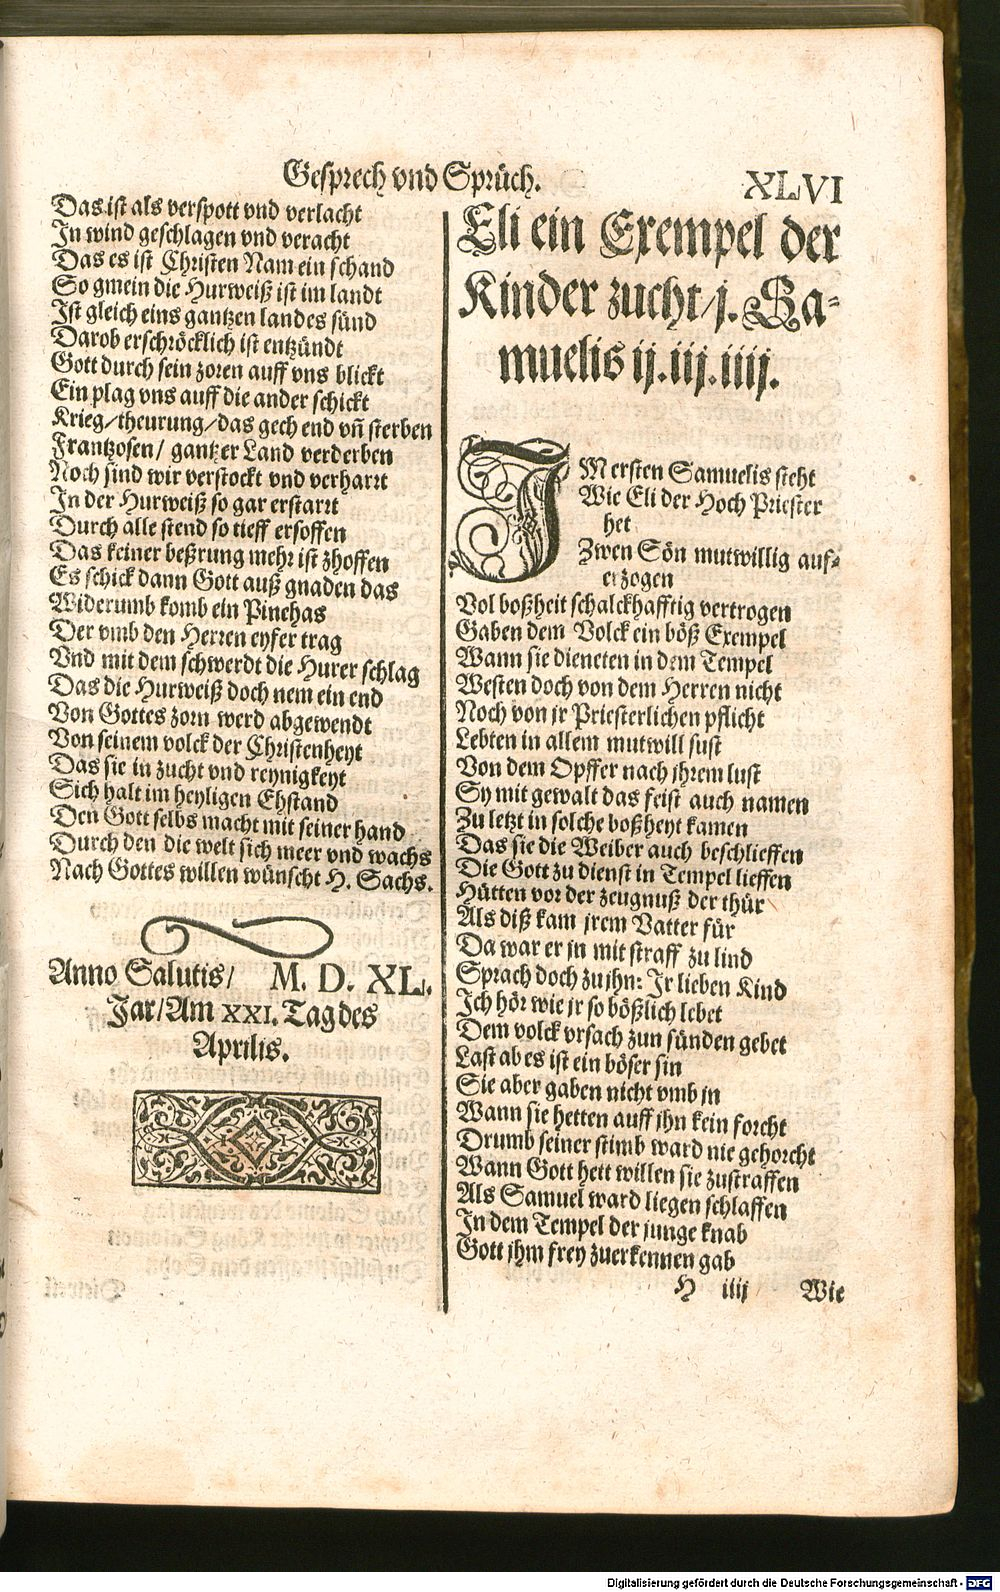 Gesprech vnd Sprüch.
XLVI
Das ist als verspott vnd verlacht
In wind geschlagen vnd veracht
Das es ist Christen Nam ein schand
So gmein die Hurweiß ist im landt
Ist gleich eins gantzen landes sünd
Darob erschröcklich ist entzündt
Gott durch sein zoren auff vns blickt
Ein plag vns auff die ander schickt
Krieg/theurung/das gech end vñ sterben
Frantzosen/ gantzer Land verderben
Noch sind wir verstockt vnd verharrt
In der Hurweiß so gar erstarrt
Durch alle stend so tieff ersoffen
Das keiner beßrung mehr ist zhoffen
Es schick dann Gott auß gnaden das
Widerumb komb ein Pinehas
Der vmb den Herren eyfer trag
Vnd mit dem schwerdt die Hurer schlag
Das die Hurweiß doch nem ein end
Von Gottes zorn werd abgewendt
Von seinem volck der Christenheyt
Das sie in zucht vnd reynigkeyt
Sich halt im heyligen Ehstand
Den Gott selbs macht mit seiner hand
Durch den die welt sich meer vnd wachs
Nach Gottes willen wünscht H. Sachs.
Anno Salutis/ M. D. XL.
Jar/Am XXI. Tag des
Aprilis.
Eli ein Exempel der
Kinder zucht/j. Sa-
muelis ij.iij.iiij.
IM ersten Samuelis steht
Wie Eli der Hoch Priester
het
Zwen Sön mutwillig auf-
erzogen
Vol boßheit schalckhafftig vertrogen
Gaben dem Volck ein böß Exempel
Wann sie dieneten in dem Tempel
Westen doch von dem Herren nicht
Noch von jr Priesterlichen pflicht
Lebten in allem mutwill sust
Von dem Opffer nach jhrem lust
Sy mit gewalt das feist auch namen
Zu letzt in solche boßheyt kamen
Das sie die Weiber auch beschlieffen
Die Gott zu dienst in Tempel lieffen
Hütten vor der zeugnuß der thür
Als diß kam jrem Vatter für
Da war er jn mit straff zu lind
Sprach doch zu jhn: Jr lieben Kind
Ich hör wie jr so bößlich lebet
Dem volck vrsach zun sünden gebet
Last ab es ist ein böser sin
Sie aber gaben nicht vmb jn
Wann sie hetten auff jhn kein forcht
Drumb seiner stimb ward nie gehorcht
Wann Gott hett willen sie zustraffen
Als Samuel ward liegen schlaffen
In dem Tempel der junge knab
Gott jhm frey zuerkennen gab
H iiij Wie
Digitalisierung gefördert durch die Deutsche Forschungsgemeinschaft - DFG